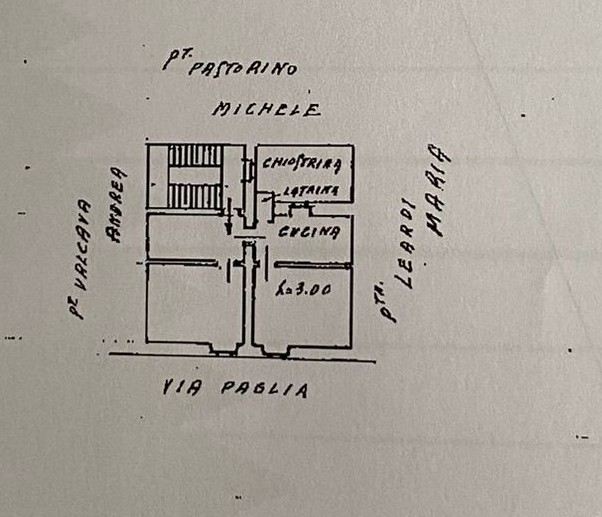 PT. PASTORINO
MICHELE
CHIOSTRINA
LATRINA
CUCINA
h=3.00
PT. VALCAVA
ANDREA
PTA. LEARDI
MARIA
VIA PAGLIA